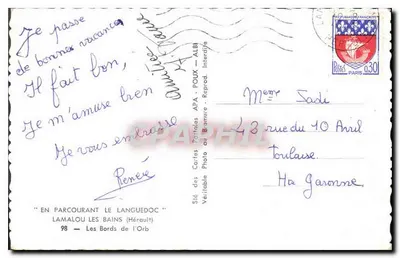 Je passe
de bonnes vacances
Il fait bon,
Je m'amuse bien
Je vous embrasse
Renée
"EN PARCOURANT LE LANGUEDOC"
LAMALOU LES BAINS (Hérault)
98 — Les Bords de l'Orb
Sté des Cartes Postales APA - POUX - ALBI
Véritable Photo au Bromure - Reprod. Interdite
PARIS 0,30
Mme Sadi
43 rue du 10 Avril
Toulouse
Hte Garonne